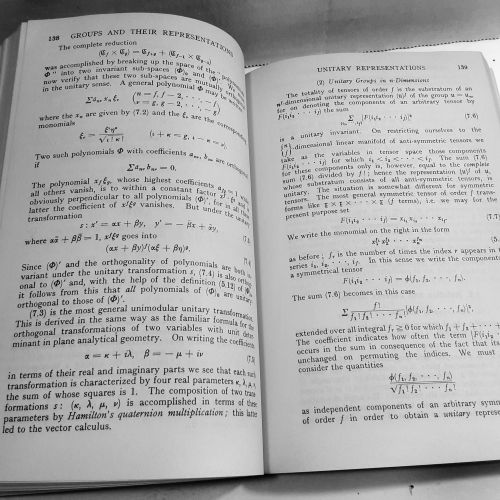 138 GROUPS AND THEIR REPRESENTATIONS
The complete reduction
(𝕮f × 𝕮g) = 𝕮f+g + (𝕮f-1 × 𝕮g-1)
was accomplished by breaking up the space of the "
Φ" into two invariant sub-spaces (Φ)0 and (Φ)'. We
now verify that these two sub-spaces are mutually
in the unitary sense. A general polynomial Φ may be written
where the xn are given by (7.2) and the ξn are the corresponding
monomials,
Two such polynomials Φ with coefficients an, bn are orthogonal
if
The polynomial xfξg, whose highest coefficients
all others vanish, is to within a constant factor
obviously perpendicular to all polynomials (Φ)',
latter the coefficient of xfξg vanishes. But under the unitary
transformation
s : x' = αx + βy, y' = − β̄x + ᾱy,
where αᾱ + ββ̄ = 1, xfξg goes into
(αx + βy)f(ᾱξ + β̄η)g.
Since (Φ)' and the orthogonality of polynomials are both in-
variant under the unitary transformation s, (7.4) is also
onal to (Φ)' and, with the help of the definition (5.12) of
it follows from this that all polynomials of (Φ)0 are unitary-
orthogonal to those of (Φ)'.
(7.3) is the most general unimodular unitary transformation.
This is derived in the same way as the familiar formula for the
orthogonal transformations of two variables with unit deter-
minant in plane analytical geometry. On writing the coefficients
α = κ + iλ, β = − μ + iν
in terms of their real and imaginary parts we see that each such
transformation is characterized by four real parameters κ, λ, μ, ν
the sum of whose squares is 1. The composition of two trans-
formations s : (κ, λ, μ, ν) is accomplished in terms of these
parameters by Hamilton's quaternion multiplication; this latter
led to the vector calculus.
UNITARY REPRESENTATIONS 139
(2) Unitary Groups in n-Dimensions
The totality of tensors of order f is the substratum of an
nf-dimensional unitary representation [u]f of the group u = un,
for on denoting the components of an arbitrary tensor by
F(i1i2 · · · if) the sum
Σ |F(i1i2 · · · if)|2 (7.6)
is a unitary invariant. On restricting ourselves to the
-dimensional linear manifold of anti-symmetric tensors we
take as the variables in tensor space those components
F(i1i2 · · · if) for which i1 < i2 < · · · < if. The sum (7.6)
for these components only is, however, equal to the complete
sum (7.6) divided by f!; hence the representation {u}f of u,
whose substratum consists of all anti-symmetric tensors, is
unitary. The situation is somewhat different for symmetric
tensors. The most general symmetric tensor of order f trans-
forms like x × x × · · · × x (f terms), i.e. we may for the
present purpose set
F(i1i2 · · · if) = xi1 xi2 · · · xif (7.7)
We write the monomial on the right in the form
as before; fr is the number of times the index r appears in the
series i1, i2, · · ·, if. In this sense we write the components
a symmetrical tensor
F(i1i2 · · · if) = φ(f1, f2, · · · fn).
The sum (7.6) becomes in this case
Σ f! / f1! f2! · · · fn! |φ(f1, f2, · · · fn)|2,
extended over all integral fr ≧ 0 for which f1 + f2 + · · · +
The coefficient indicates how often the term |F(i1i2 · · ·
occurs in the sum in consequence of the fact that its
unchanged on permuting the indices. We must
consider the quantities
φ(f1, f2, · · · fn)
√f1! f2! · · · fn!
as independent components of an arbitrary symm
of order f in order to obtain a unitary represe